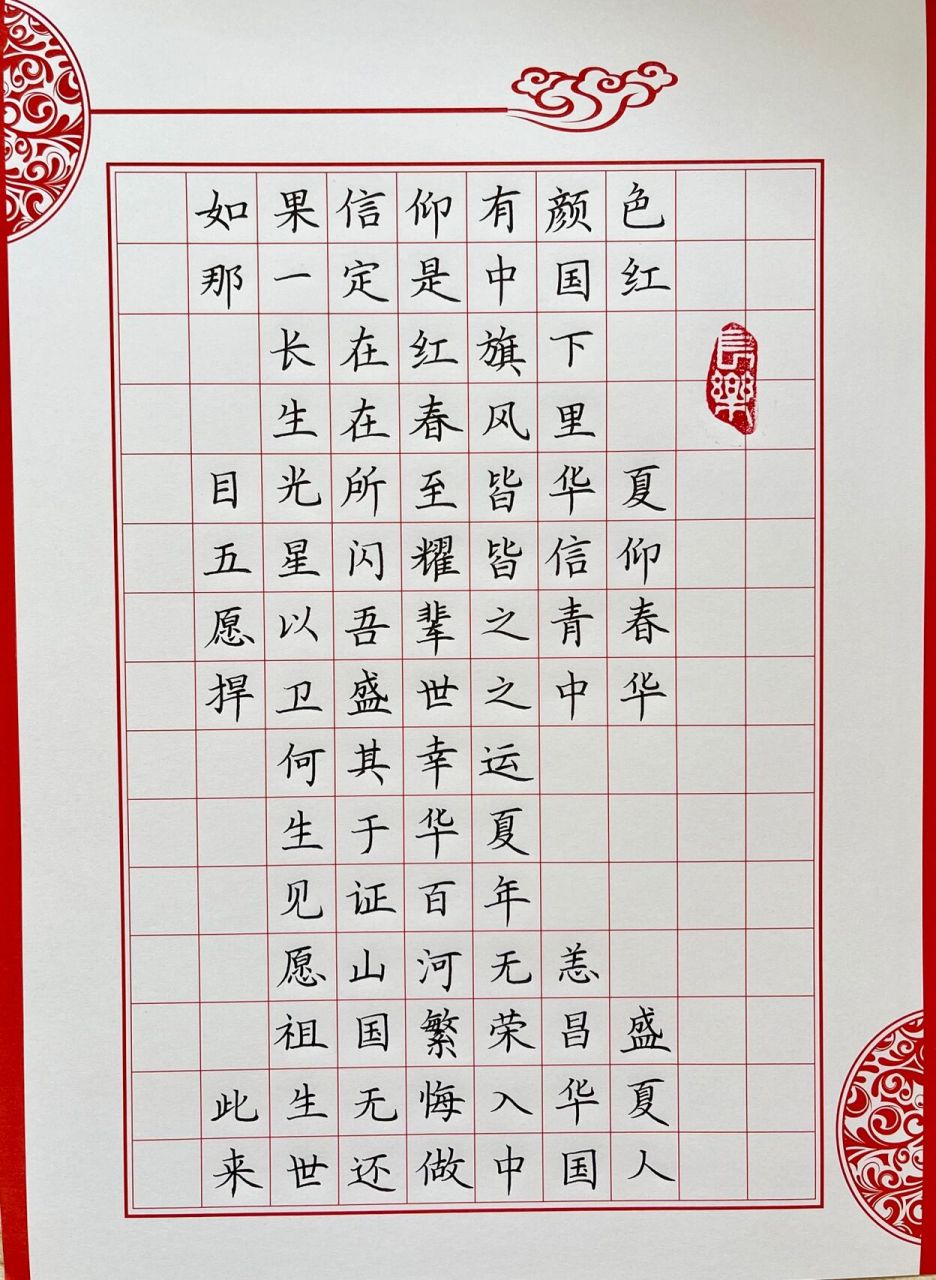 如果信仰有颜色
那一定是中国红
长在红旗下
生在春风里
目光所至皆华夏
五星闪耀皆信仰
愿以吾辈之青春
捍卫盛世之中华
何其幸运
生于华夏
见证百年
愿山河无恙
祖国繁荣昌盛
此生无悔入华夏
来世还做中国人
長樂